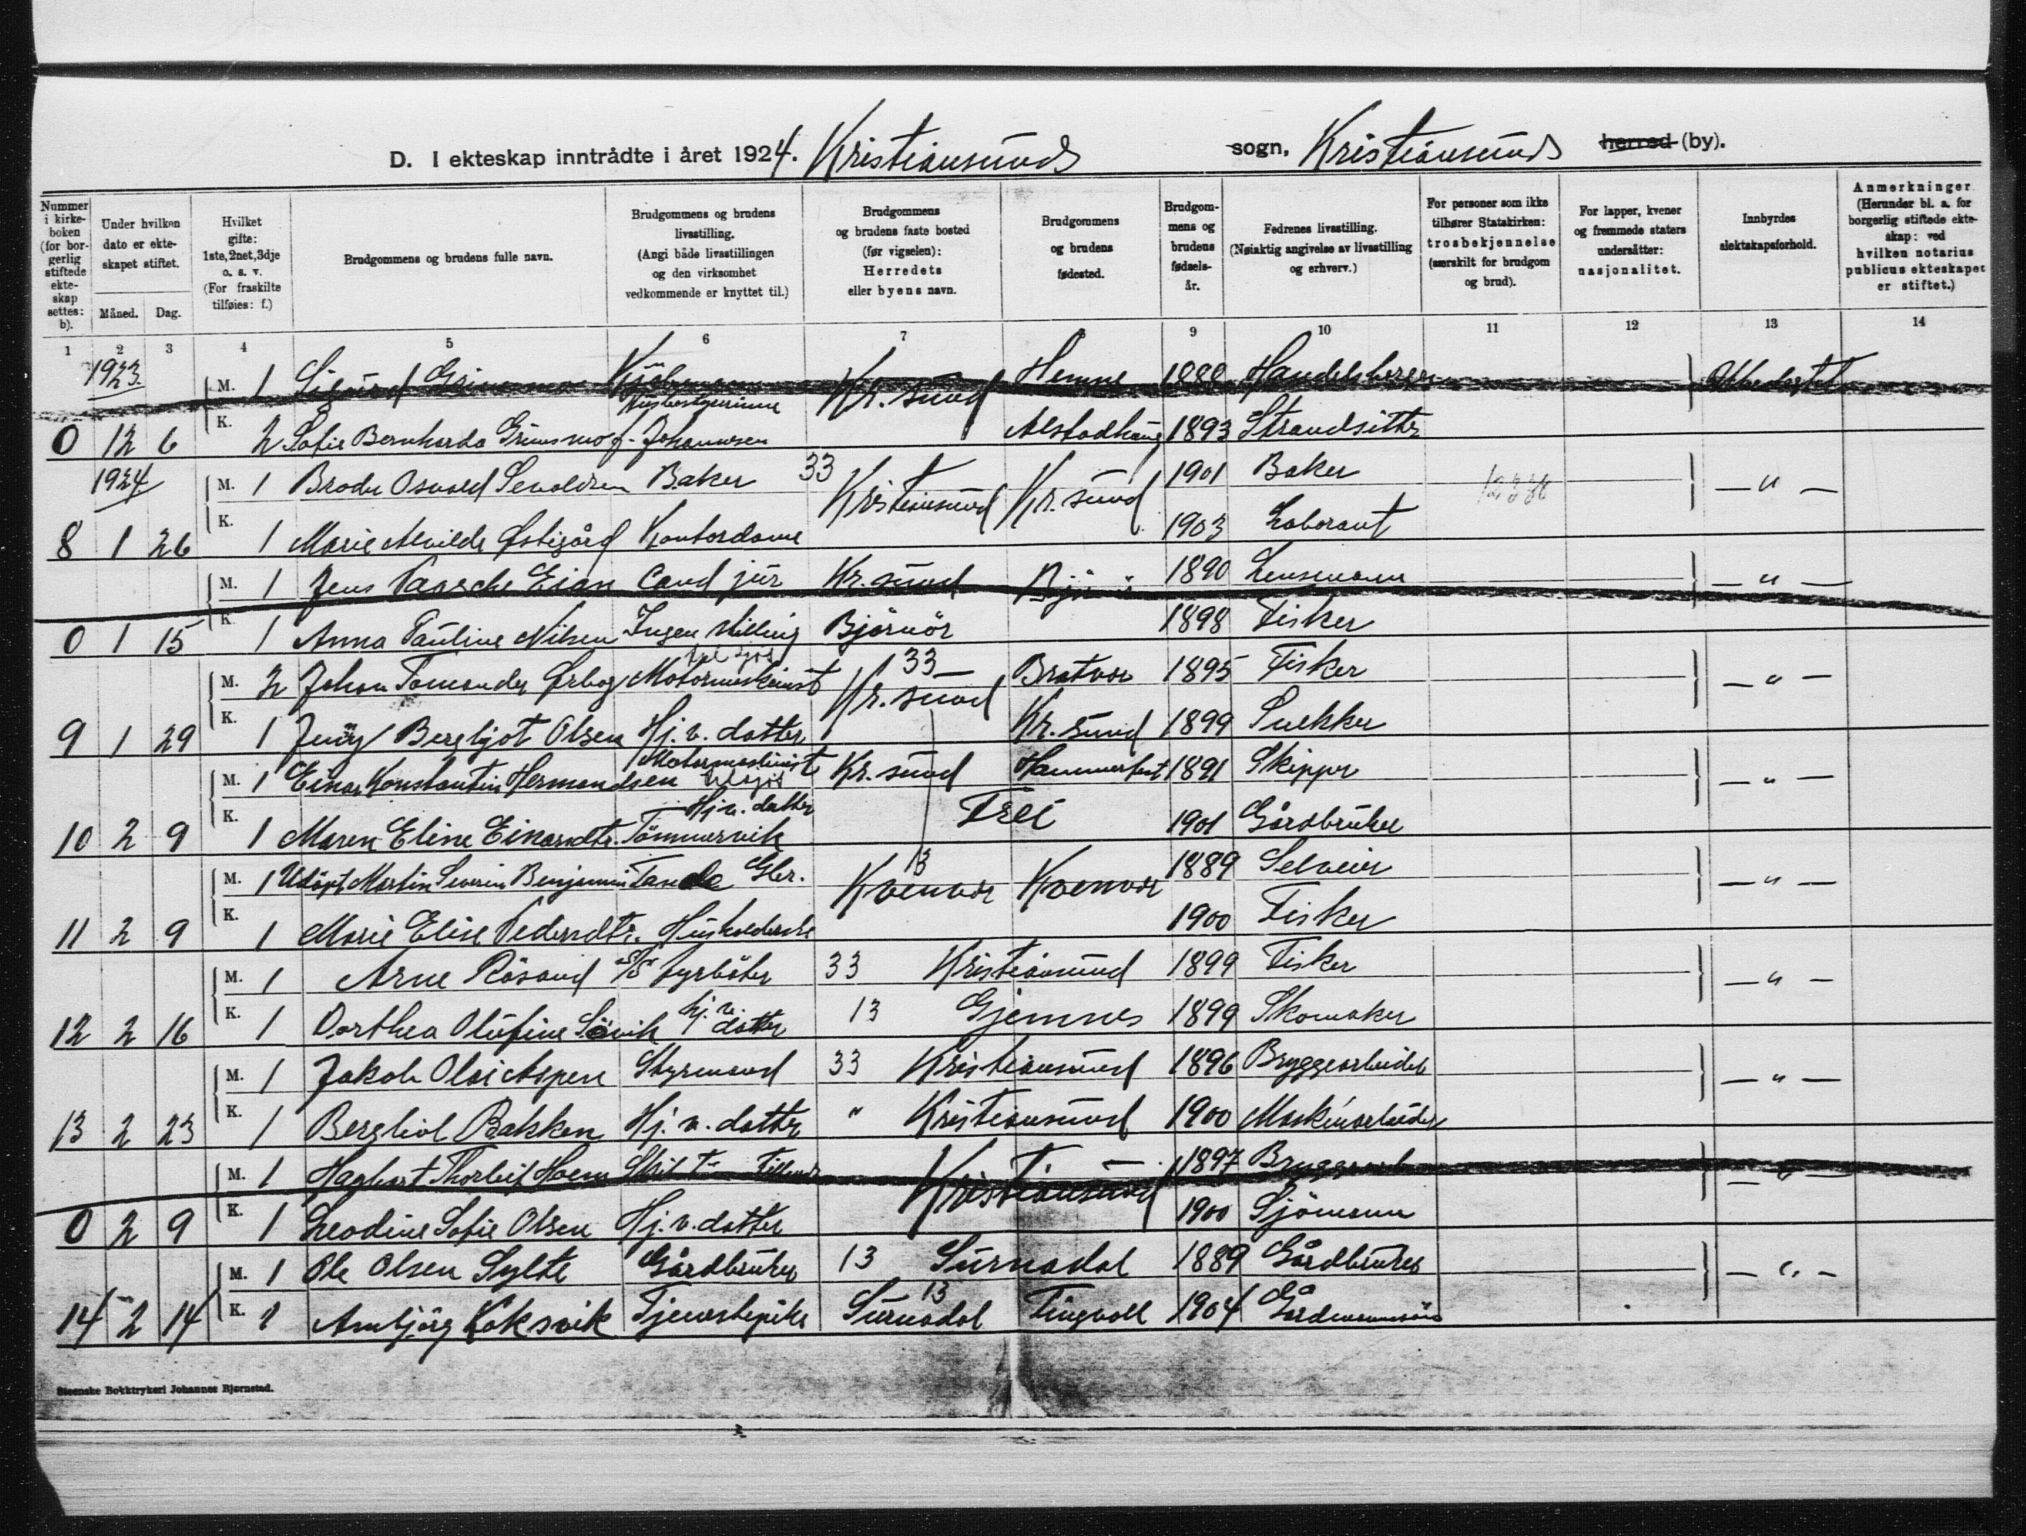 D. I ekteskap inntrådte i året 1924. Kristiansunds sogn, Kristiansunds herred (by).
Nummer i kirke-boken (for bor-gerlig stiftede ekte-skap settes: b).
Under hvilken dato er ekte-skapet stiftet.
Måned. Dag.
Hvilket gifte: 1ste, 2net, 3dje o. s. v. (For fraskilte tilføies: f.)
Brudgommens og brudens fulle navn.
Brudgommens og brudens livsstilling. (Angi både livsstillingen og den virksomhet vedkommende er knyttet til.)
Brudgommens og brudens faste bosted (før vigselen): Herredets eller byens navn.
Brudgommens og brudens fødested.
Brudgom-mens og brudens fødsels-år.
Fedrenes livsstilling. (Nøiaktig angivelse av livsstilling og erhverv.)
For personer som ikke tilhører Statskirken: trosbekjennelse (særskilt for brudgom og brud).
For lapper, kvener og fremmede staters undersåtter: nasjonalitet.
Innbyrdes slektskapsforhold.
Anmerkninger (Herunder bl. a. for borgerlig stiftede ekte-skap: ved hvilken notarius publicus ekteskapet er stiftet.)
1 2 3 4 5 6 7 8 9 10 11 12 13 14
1923.
M. 1 Sigurd Grimsmo Kjøbmann Kr. sund Hemne 1888
Husbestyrerinne
0 12 6 K. 2 Sofie Bernharda Grimsmo f. Johannesen Alstadhaug 1893 Strandsitter
1924
M. 1 Osvald Baker 33 Kristiansund Kr. sund 1901 Baker — " —
8 1 26 K. 1 Marie Alvilde Østigård Kontordame 1903 Laborant
M. 1 Jens Paasche Eian Cand jur Kr. sund 1890 Lensmann — " —
0 1 15 K. 1 Anna Pauline Nilsen Ingen stilling Bjørnör 1898 Fisker
til sjøs
M. 2 Johan Ørbog Motormaskinist 33 Kr. sund 1895 Fisker — " —
9 1 29 K. 1 Jenny Bergljot Olsen Hj. v. datter Kr. sund 1899 Snekker
Motormaskinist
M. 1 Einar Konstantin Hermandsen til sjøs Kr. sund Hammerfest 1891 Skipper — " —
Hj. v. datter
10 2 9 K. 1 Maren Eline Einarsdtr. Tömmervik Frei 1901 Gårdbruker
M. 1 Martin Severin Benjamin Tande Gbr. 13 Kvenvær Kvenvær 1889 Selveier — " —
11 2 9 K. 1 Marie Elise Pedersdtr. Husholderske 1900 Fisker
M. 1 Arne Røsand fyrbøter 33 Kristiansund 1899 Fisker — " —
12 2 16 K. 1 Dorthea Olufine hj. v. datter 13 Gjemnes 1899 Skomaker
M. 1 Jakob Styrmand 33 Kristiansund 1896 Bryggearbeider — " —
13 2 23 K. 1 Bergliot Bakken Hj. v. datter " Kristiansund 1900 Maskinarbeider
M. 1 Hagbart Thorleif Hoem Kristiansund 1897 — " —
0 2 9 K. 1 Leodine Sofie Olsen Hj. v. datter 1900 Sjömann
M. 1 Ole Olsen Sylte Gårdbruker 13 Surnadal 1889 Gårdbruker — " —
14 2 14 K. 1 Ambjörg Koksvik Tjenestepike 13 Surnadal Tingvoll 1904
Steenske Boktrykeri Johannes Bjørnstad.